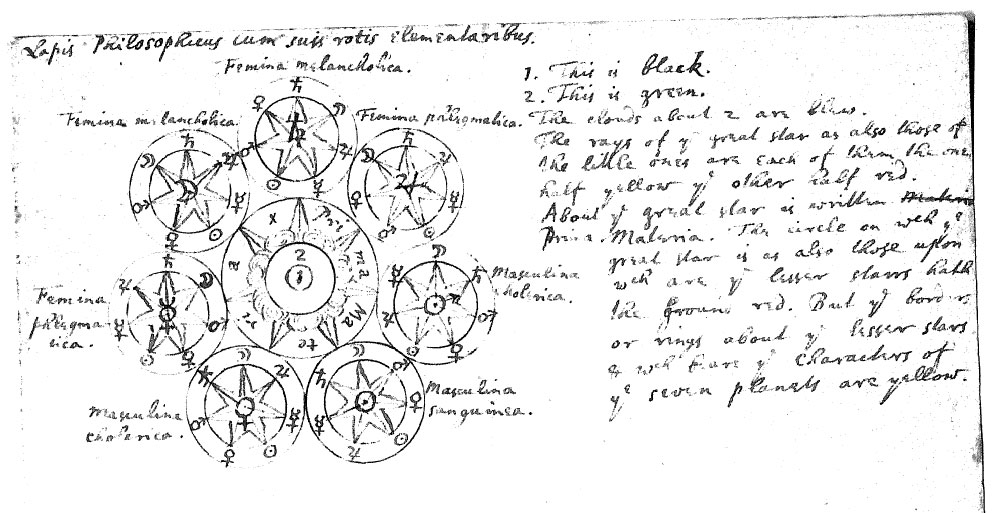 Lapis Philosophicus cum suis rotis elementaribus.
Femina melancholica.
Femina melancholica.
Femina phlegmatica.
Femina
phlegma
tica.
Masculina
cholerica.
Masculina
cholerica.
Masculina
sanguinea.
Pri ma Ma te ri a x
2
1
1. This is black.
2. This is green.
The clouds about 2 are blew.
The rays of yᵉ great star as also those of
the little ones are each of them the one
half yellow yᵉ other half red.
About yᵉ great star is written Materia
Prima Materia. The circle on wch yᵉ
great star is as also those upon
wch are yᵉ lesser starrs hath
the ground red. But yᵉ borders
or rings about yᵉ lesser stars
& wch beare yᵉ characters of
yᵉ seven planets are yellow.